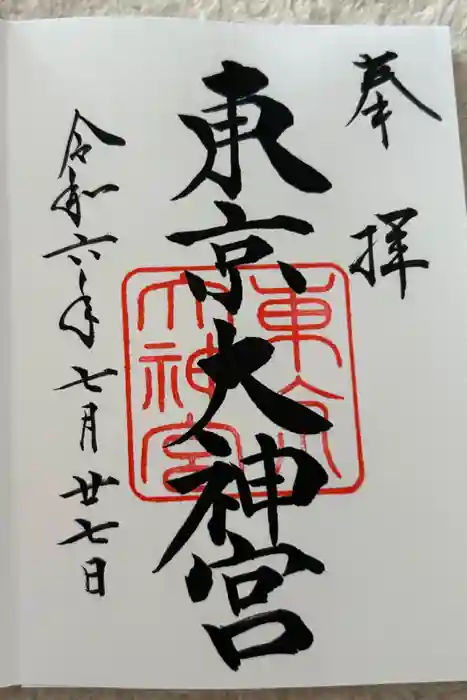 奉拝
東京大神宮
東京大神宮
令和六年七月廿七日